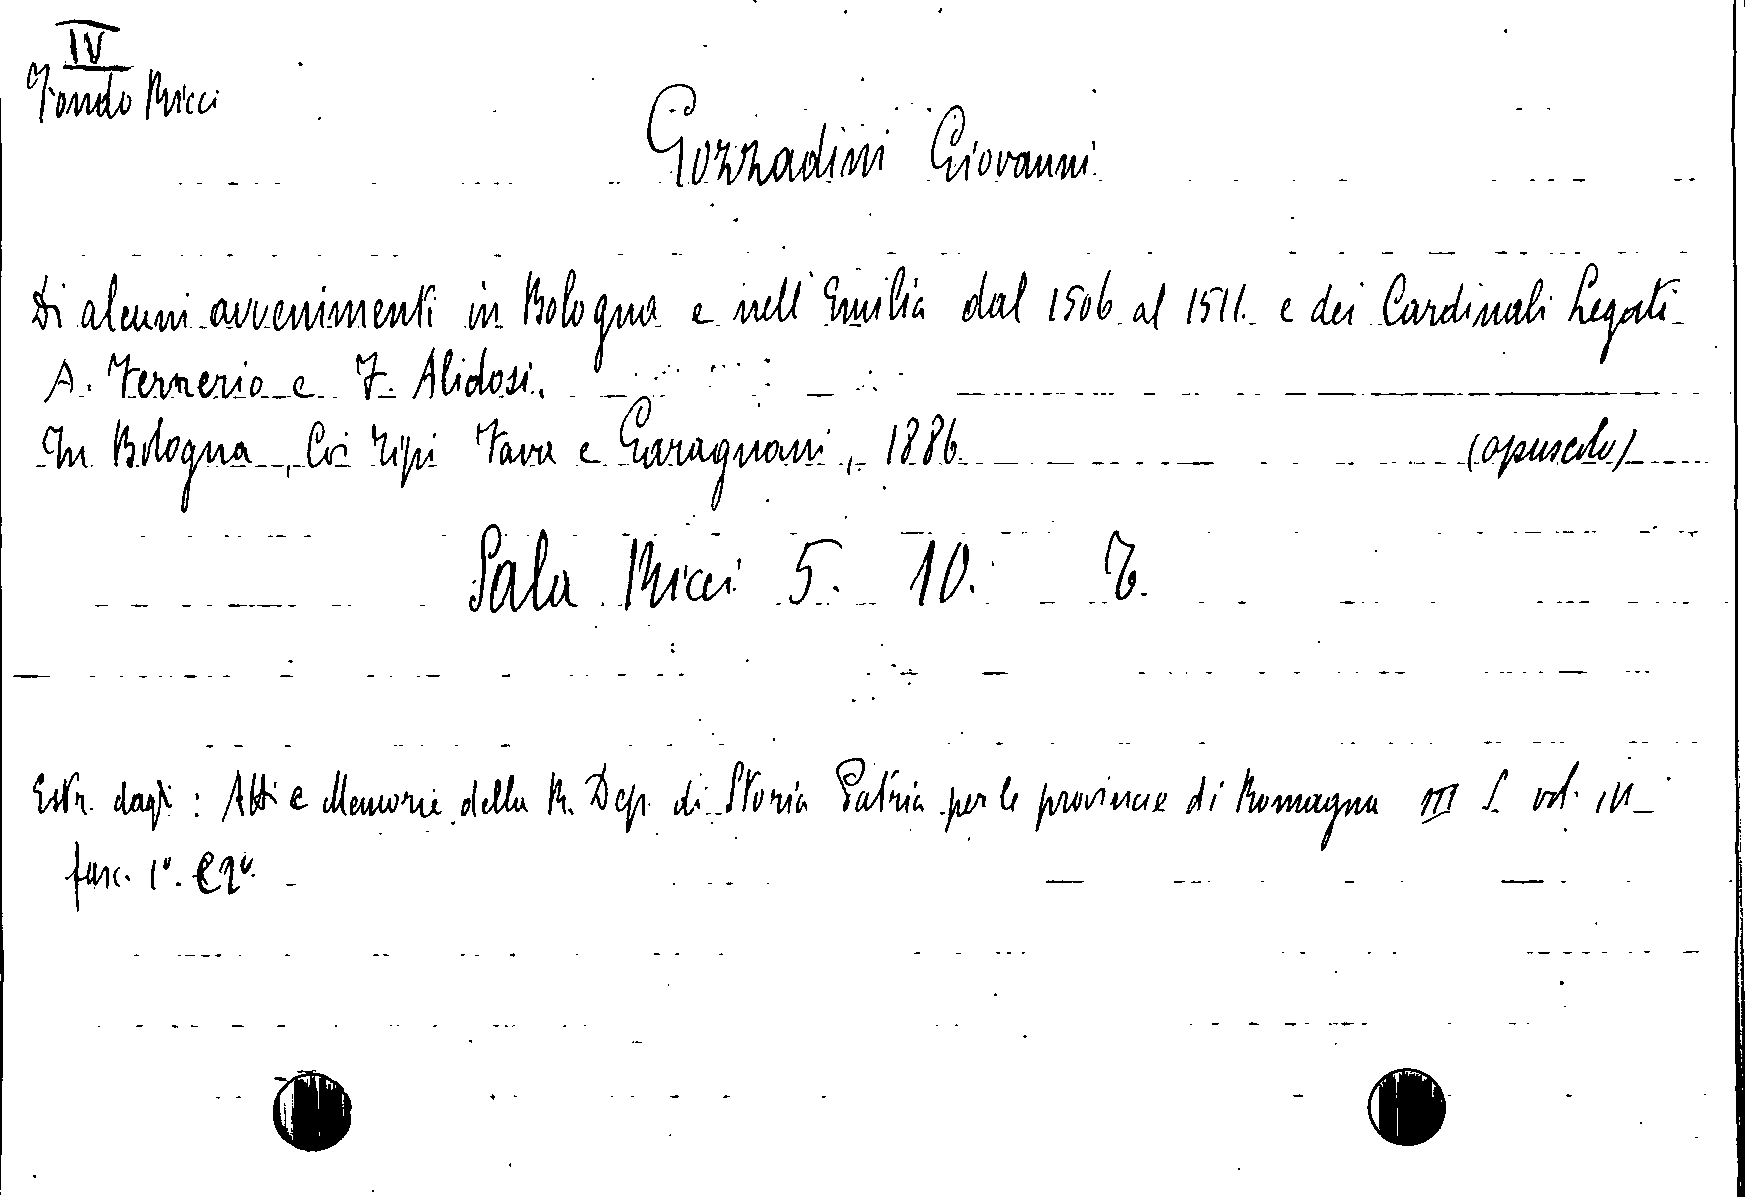 IV
Fondo Ricci
Gozzadini Giovanni
Di alcuni avvenimenti in Bologna e nell'Emilia dal 1506 al 1511. e dei Cardinali Legati
A. Ferrerio e F. Alidosi.
In Bologna, Coi Tipi Fava e Garagnani, 1886 (opuscolo)
Sala Ricci 5. 10.
Estr. dagli: Atti e Memorie della R. Dep. di Storia Patria per le provincie di Romagna III S. vol. IV
fasc. 1°. e 2°.